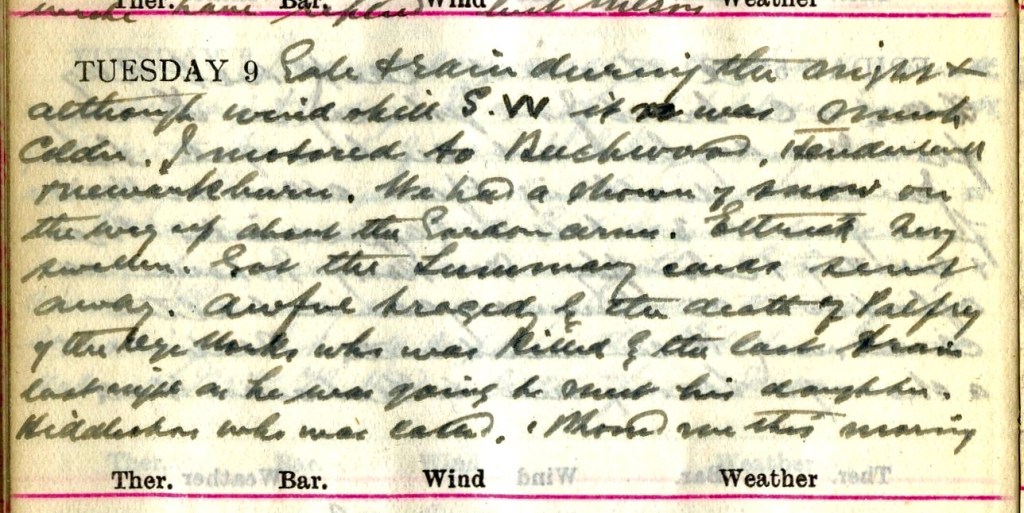 Ther. Bar. Wind Weather
TUESDAY 9 Gale & rain during the night &
although wind still S.W it was much
Colder. I motored to Buckwood,
& Newarkburn. We had a shower of snow on
the way up about the Gordon arms. Ettrick very
swollen. Got the Summary cards sent
away. Awful tragedy by the death of Palfrey
of the Works who was killed by the last train
last night as he was going to meet his daughter.
who was . Phoned me this morning
Ther. Bar. Wind Weather